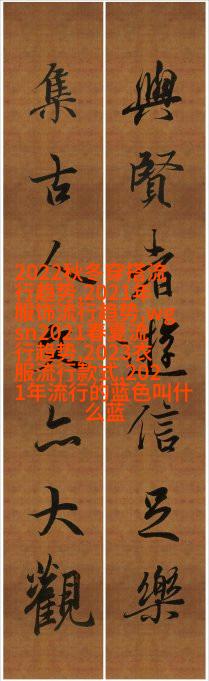 與賢者遊信足樂
集古人亦大觀
2022秋冬穿搭流
行趋势,2021年
服饰流行趋势,wg
sn2021春夏流
行趋势,2023衣
服流行款式,202
1年流行的蓝色叫什
么蓝